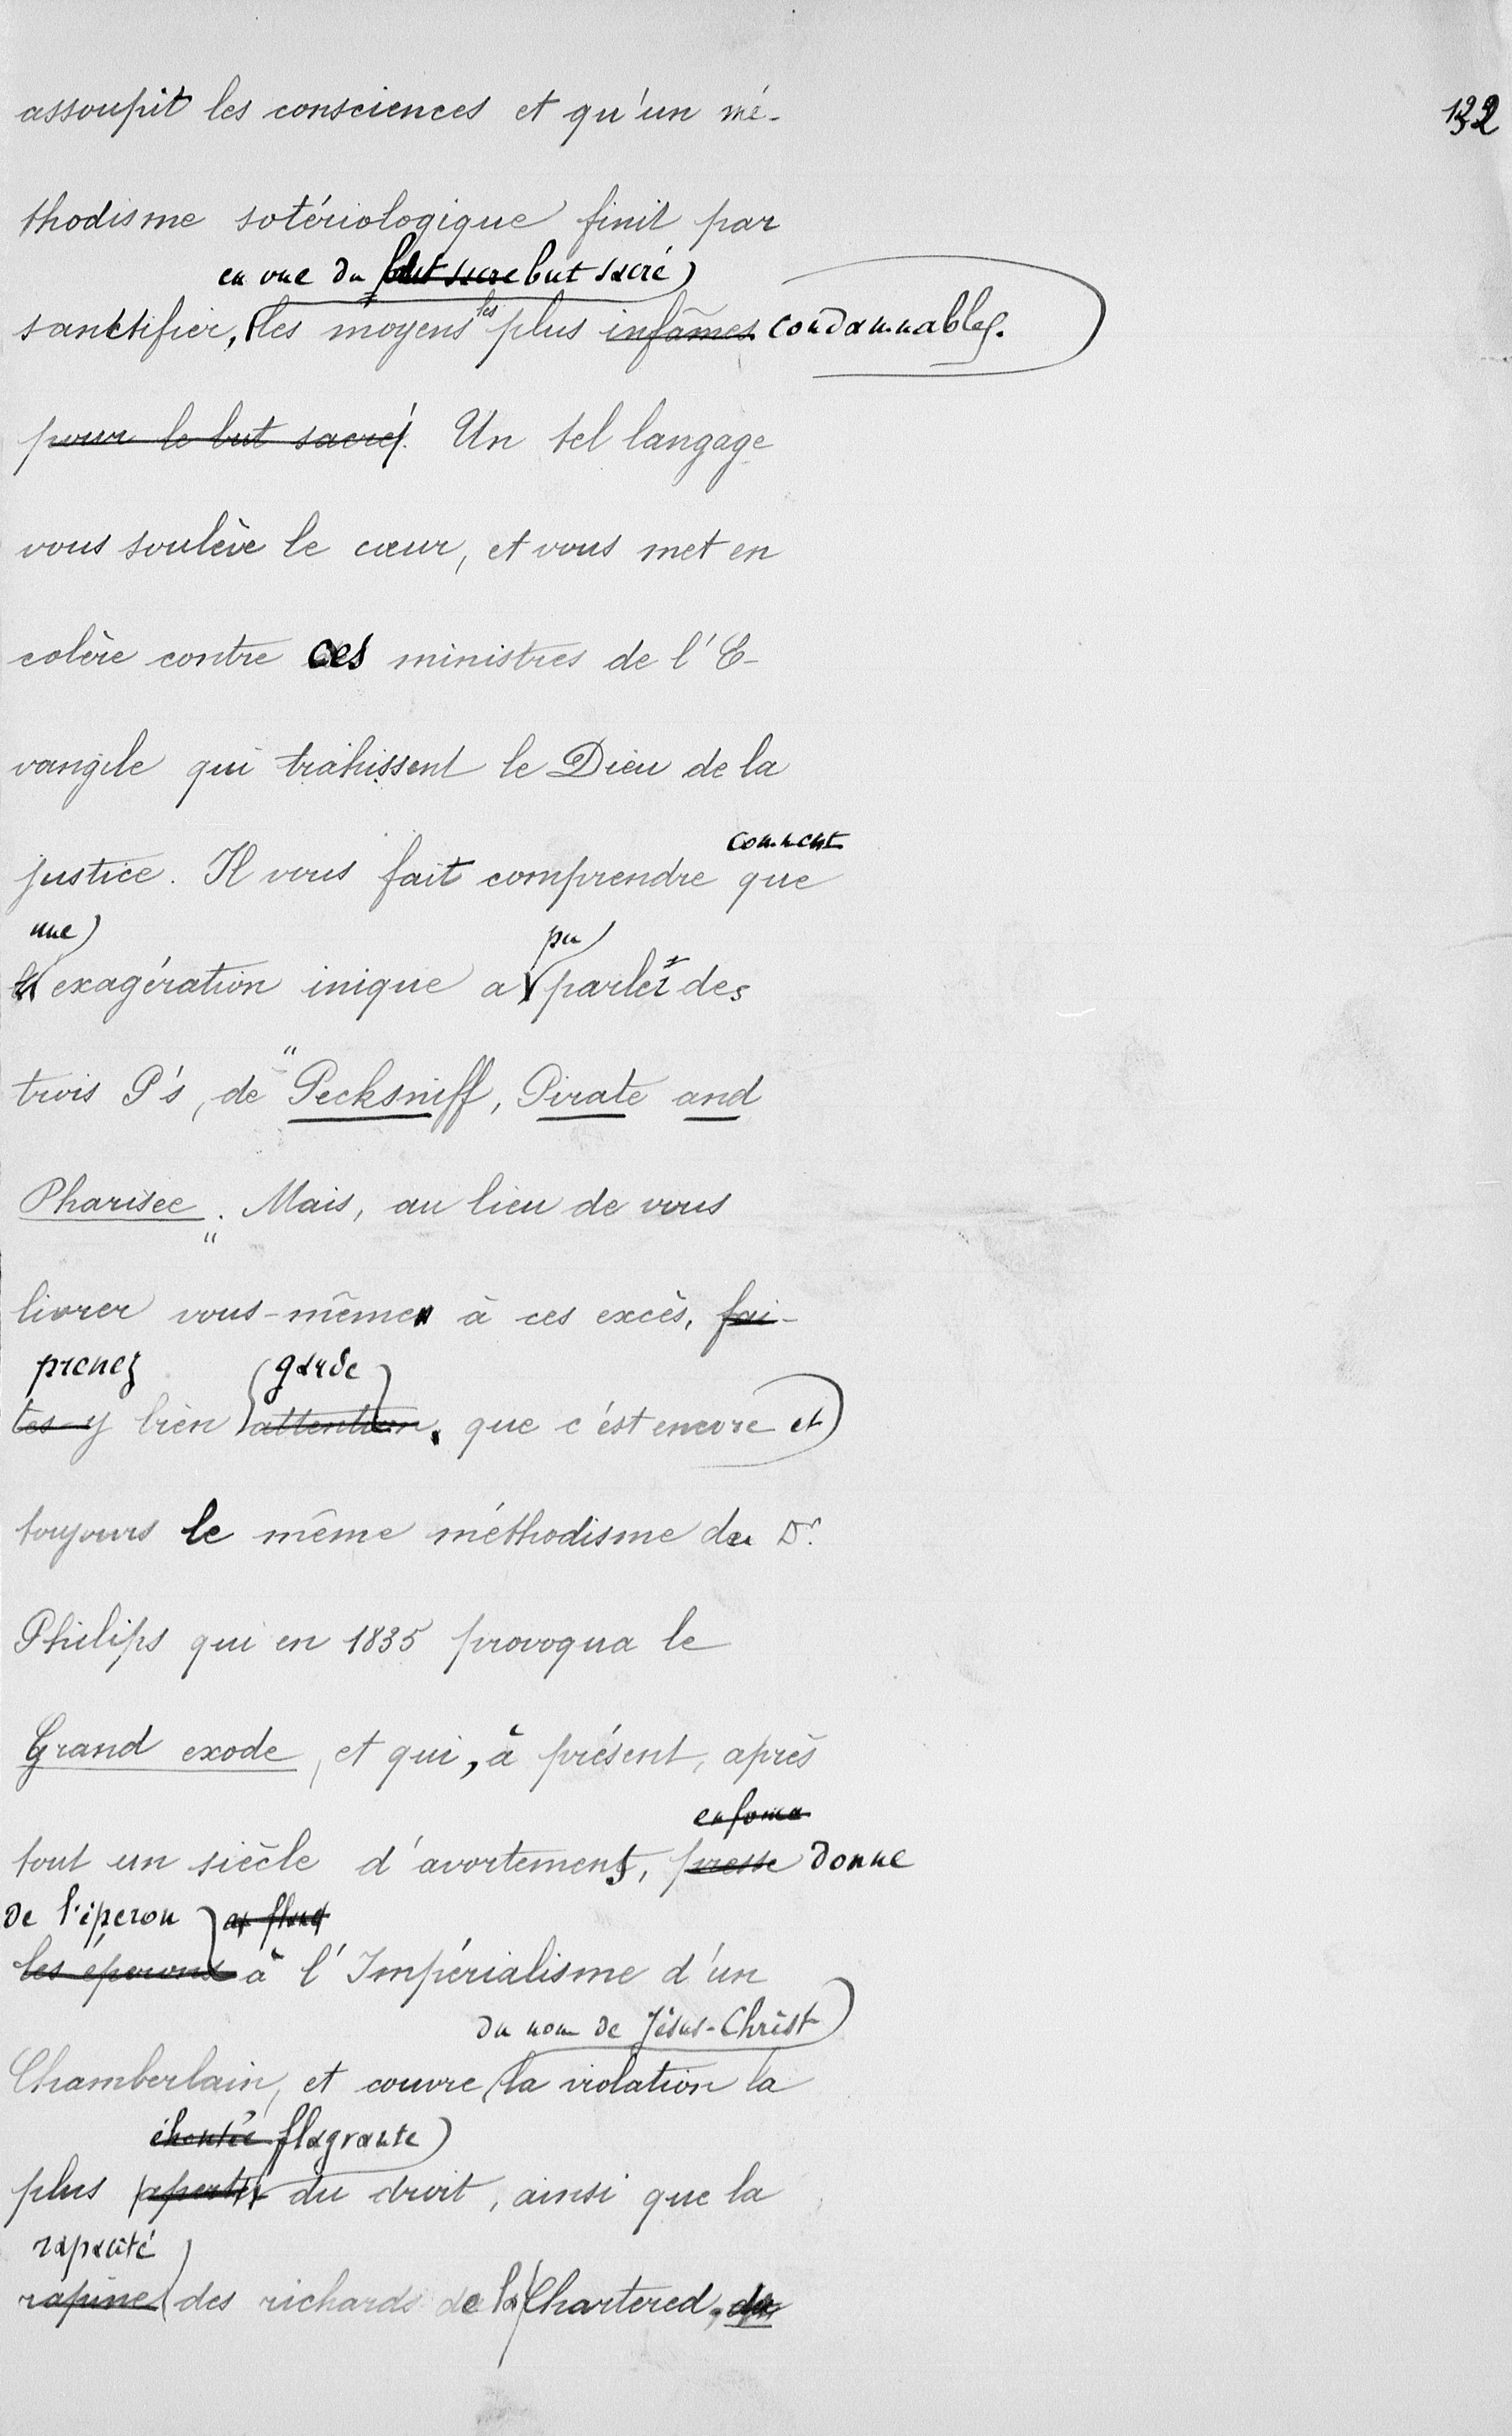 132
assoupit les consciences et qu'un mé-
thodisme sotériologique finit par
en vue du but sacré
sanctifier, les moyens les plus infâmes condamnables.
pour le but sacré. Un tel langage
vous soulève le cœur, et vous met en
colère contre ces ministres de l'E-
vangile qui trahissent le Dieu de la
comment
justice. Il vous fait comprendre que
une
exagération inique a parler des
pu
trois P's, de "Pecksniff, Pirate and
Pharisee". Mais, au lieu de vous
livrer vous-même à ces excès, fai-
prenez garde
tes-y bien attention, que c'est encore et
toujours le même méthodisme du Dr.
Philips qui en 1835 provoqua le
Grand exode, et qui, à présent, après
tout un siècle d'avortements, presse donne
de l'éperon
les éperons à l'Impérialisme d'un
du nom de Jésus-Christ
Chamberlain, et couvre la violation la
éhontée flagrante
plus du droit, ainsi que la
rapacité
rapine des richards de la Chartered,